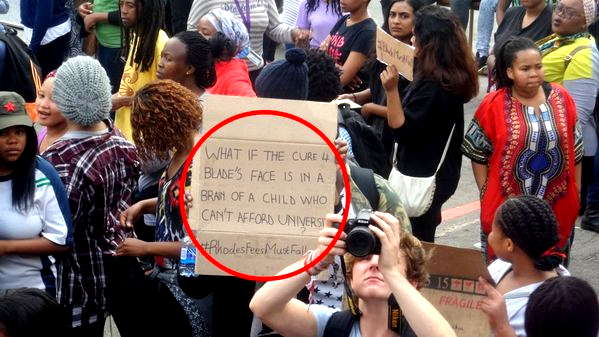 WHAT IF THE CURE 4
BLADE'S FACE IS IN A
BRAIN OF A CHILD WHO
CAN'T AFFORD UNIVERS
#RhodesFeesMustFall
#MustFall
15
FRAGILE
Nikon